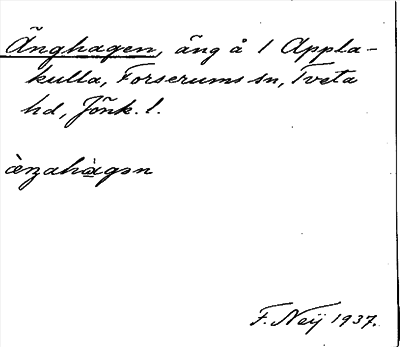 Änghagen, äng å 1 Appla-
kulla, Forserums sn, Tveta
hd, Jönk. l.
ὰŋahὰgən
F. Neÿ 1937.